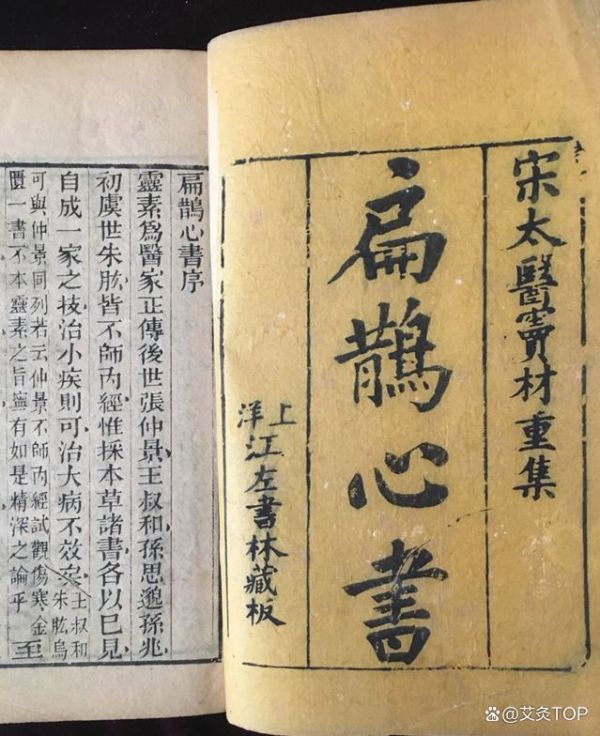 宋太醫竇材重集
扁鵲心書
上洋江左書林藏板
扁鵲心書序
靈素爲醫家正傳後世張仲景王叔和孫思邈孫兆
初虞世朱肱皆不師內經惟採本草諸書各以已見
自成一家之技治小疾則可治大病不效矣王叔和朱肱烏
可與仲景同列若云仲景不師內經試觀傷寒金
匱一書不本靈素之旨寧有如是精深之論乎至
@艾灸TOP